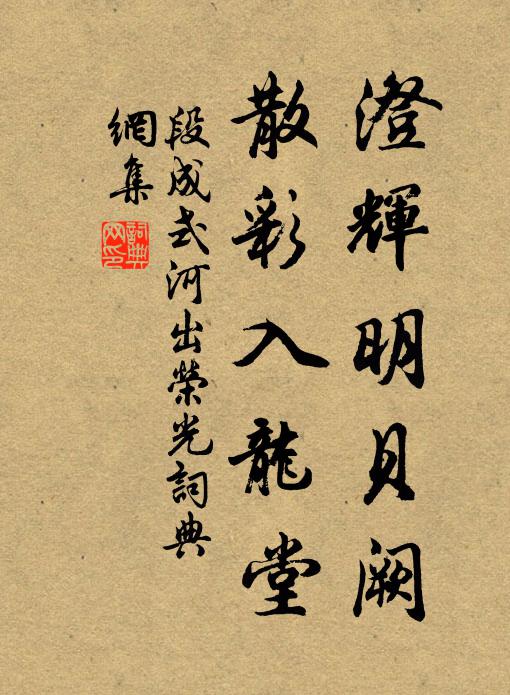 澄輝明貝闕
散彩入龍堂
段成式河出榮光詞典
網集
詞典
网印